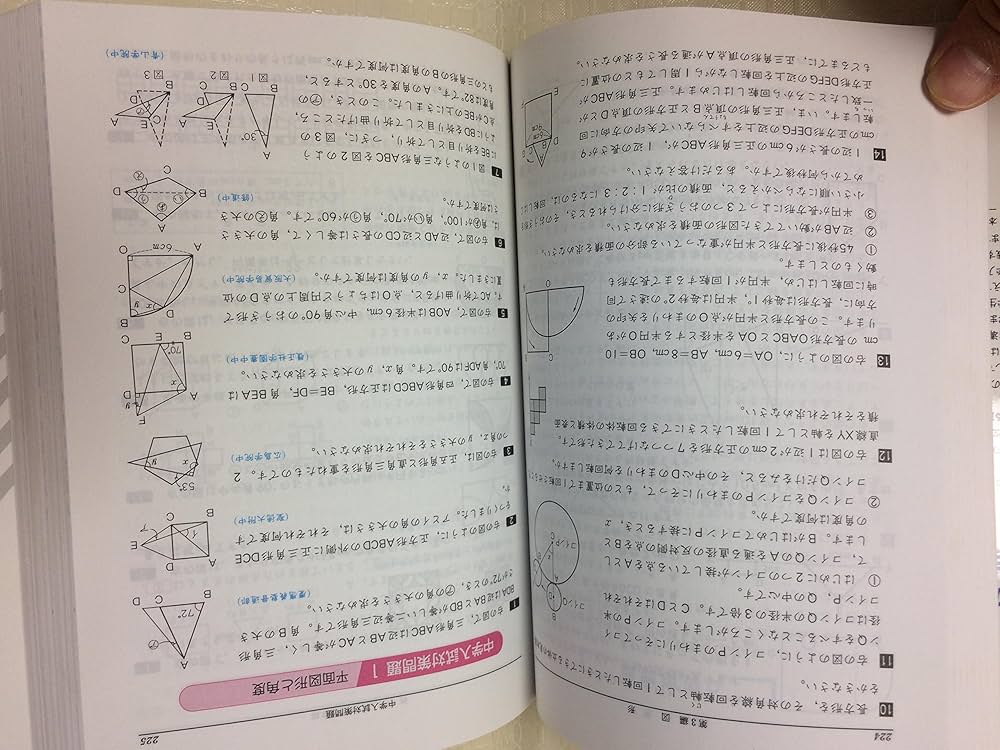 224
第3編 図 形
10 長方形を，その対角線を回転軸として1回転したときにできる立体の見取図
をかきなさい。
11 右の図のように，コインPのまわりにそってコイ
ンQをすべることなくころがします。コインPの半
径はコインQの半径の3倍です。CとDはそれぞれ
コインP，コインQの中心です。
① はじめに2つのコインが接している点をAとし
て，コインQのAを通る直径の反対側の点をBと
します。BがはじめてコインPに接するとき，x
の角度は何度ですか。
② コインQをコインPのまわりにそって，もとの位置まで1回転させると
コインQだけをみると，その中心Dのまわりを何回転しますか。
コインQ
コインP
12 右の図は1辺が2cmの正方形を7つつなげてできた形です。
直線XYを軸として1回転したときにできる回転体の体積と表面
積をそれぞれ求めなさい。
13 右の図のように，OA=6cm，AB=8cm，OB=10
cmの長方形OABCとOAを半径とする半円Oがあ
ります。この長方形と半円が点Oのまわりを矢印の
方向に，長方形は毎秒1°，半円は毎秒2°の速さで同
時に回転しはじめ，半円が1回転するまで長方形も
動くものとします。
① 45秒後に長方形と半円が重なっている部分の面積を求めなさい。
② 辺ABが動いてできた図形の面積を求めなさい。
③ 半円が長方形によって3つのおうぎ形に分けられるとき，そのおうぎ形を
小さい順にならべかえると，面積の比が1：2：3になるのは，回転し
めてから何秒後ですか。あるだけ答えなさい。
14 1辺の長さが6cmの正三角形ABCが，1辺の長さが9
cmの正方形DEFGの辺上をすべらないで矢印の方向に回
転します。いま，正三角形の頂点Bと正方形の頂点Dとが
一致したところから回転しはじめます。正三角形ABCが
正方形DEFGの辺上を回転しながら1周してもとの位置に
もどるまでに，正三角形の頂点Aが通る長さを求めなさい。
225
中学入試対策問題
中学入試対策問題 1 平面図形と角度
1 右の図で，三角形ABCはABとACが等しく，三角形
BDAは辺BAとBDが等しい二等辺三角形です。角Bの大き
さが72°のとき，㋐の角の大きさを求めなさい。
（慶應義塾普通部）
2 右の図のように，正方形ABCDの外側に正三角形DCE
をつくりました。アとイの角の大きさは，それぞれ何度です
か。
（聖徳大附中）
3 右の図は，正五角形と直角三角形を重ねたものです。2
つの角x，yの大きさをそれぞれ求めなさい。
（広島学院中）
53°
4 右の図で，四角形ABCDは正方形，BE=DF，角BEAは
70°，角ADFは90°です。角x，yの大きさを求めなさい。
5 右の図で，AOBは半径6cm，中心角90°のおうぎ形で
す。ACで折り曲げると，点Oはちょうど円周上の点Dの位
置にきました。x，yの角度は何度ですか。
（大阪貿易学院中）
6cm
6 右の図で，辺ADと辺CDの長さは等しくて，角の大きさ
は，角㋐が100°，角㋑が70°，角㋒が60°です。角㋓の大き
さは何度ですか。
（修道中）
7 図1のような三角形ABCを図2のよう
にBEを折り目として折り，つぎに，図3の
ようにBDを折り目として折り曲げたところ，
点CがBEの上にきました。このとき，㋐の
角度は82°です。Aの角度を30°とすると，
もとの三角形のBの角度は何度ですか。
（青山学院中）
図1
図2
図3